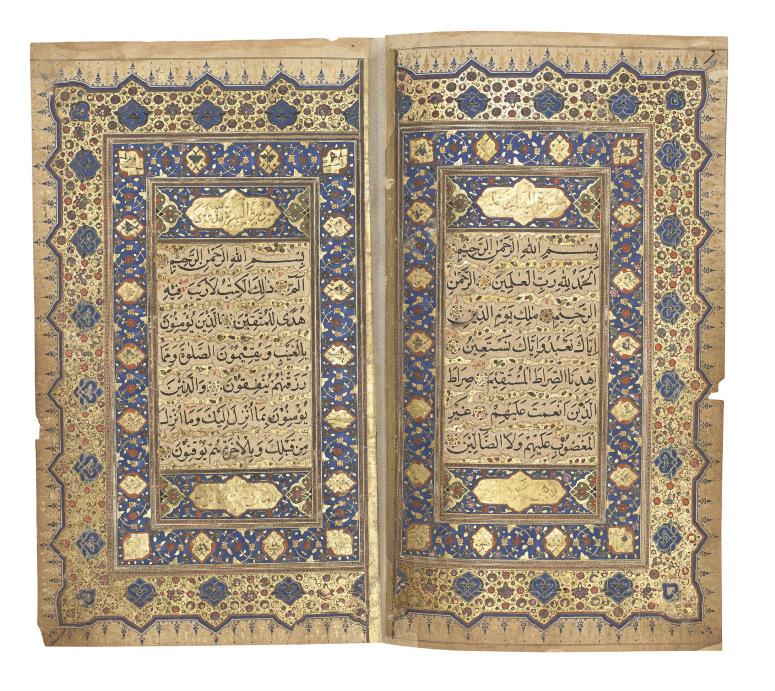 بسم الله الرحمن الرحيم
الحمد لله رب العلمين الرحمن
الرحيم ملك يوم الدين
اياك نعبد واياك نستعين
اهدنا الصراط المستقيم صراط
الذين انعمت عليهم غير
المغضوب عليهم ولا الضالين
بسم الله الرحمن الرحيم
الم ذلك الكتب لا ريب فيه
هدى للمتقين الذين يؤمنون
بالغيب ويقيمون الصلوة ومما
رزقنهم ينفقون والذين
يؤمنون بما انزل اليك وما انزل
من قبلك وبالاخرة هم يوقنون